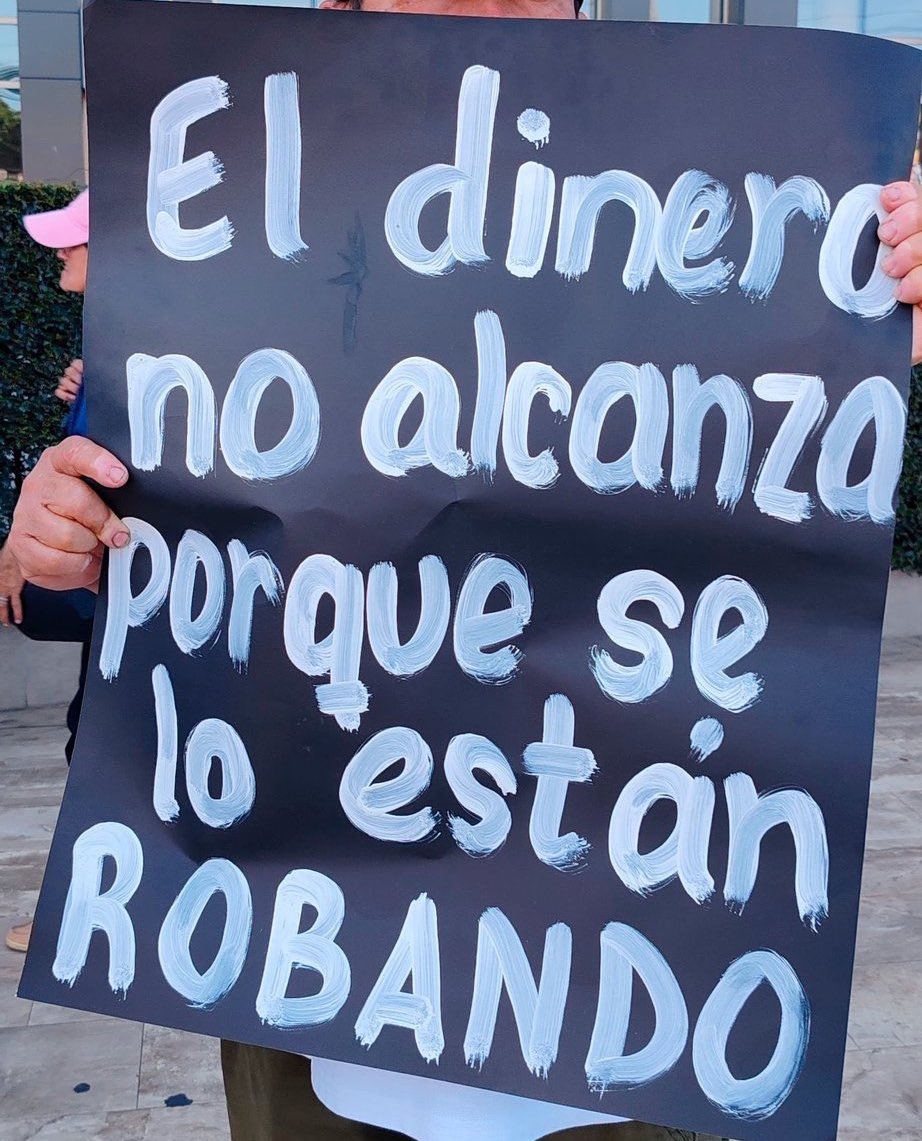 El dinero
no alcanza
porque se
lo están
ROBANDO